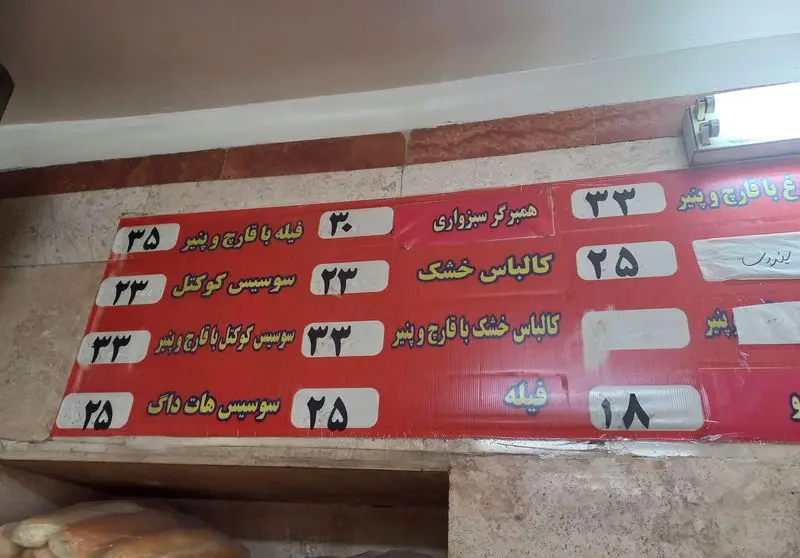 با قارچ و پنیر ۳۳
۲۵
پنیر
۱۸
همبرگر سبزواری ۳۰
کالباس خشک ۲۳
کالباس خشک با قارچ و پنیر ۳۳
فیله ۲۵
فیله با قارچ و پنیر ۳۵
سوسیس کوکتل ۲۳
سوسیس کوکتل با قارچ و پنیر ۳۳
سوسیس هات داگ ۲۵